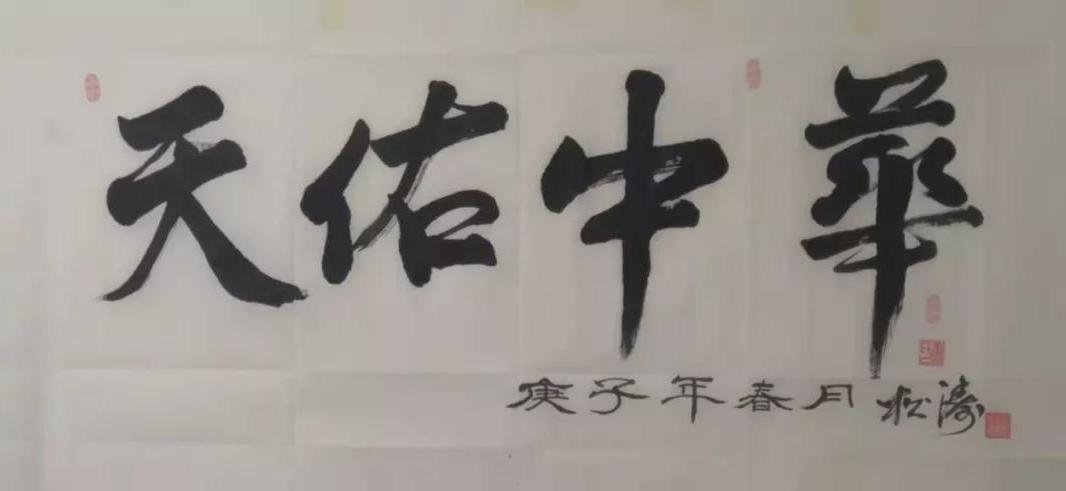 天佑中華
庚子年春月松濤